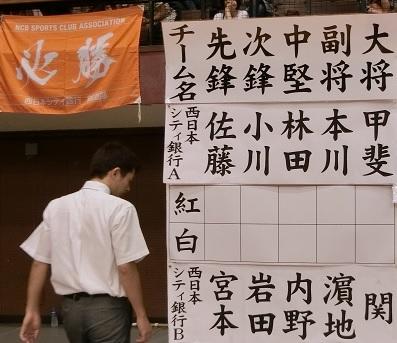 NCB SPORTS CLUB ASSOCIATION
必勝
西日本シティ銀行
チーム名 先鋒 次鋒 中堅 副将 大将
西日本シティ銀行A 佐藤 小川 林田 本川 甲斐
紅
白
西日本シティ銀行B 宮本 岩田 内野 濵地 関